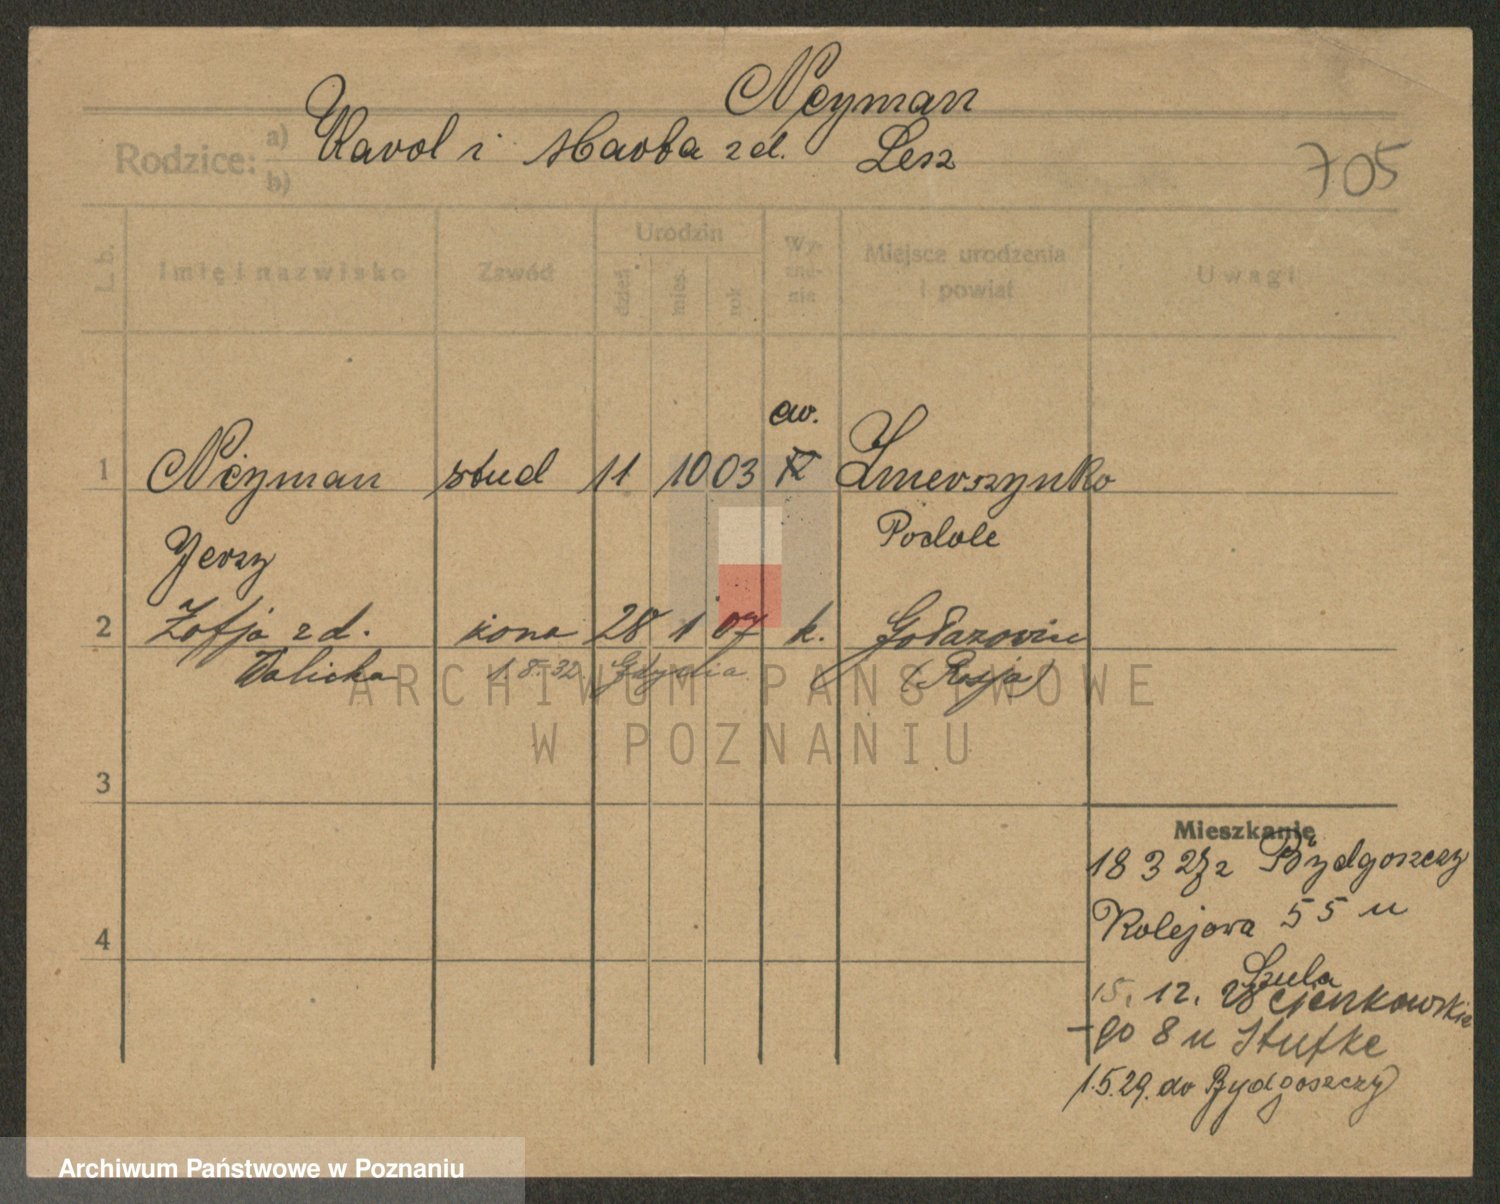 Neyman
Rodzice: a) Karol i Marta z d. Lesz
b)
705
L. b. Imię i nazwisko Zawód Urodzin dzień mies. rok Wyznanie Miejsce urodzenia i powiat Uwagi
ew.
1 Neyman stud 11 10 03 Żmerzynko
Jerzy Podole
2 Zofja z d. żona 28 1 07 k.
Walicka 1.8.32 Gdynia (Rosja)
3
4
Mieszkanie
18 3 27 z Bydgoszczy
Kolejowa 55 u
Szula
15. 12.
-go 8 u Stufke
1.5.29. do Bydgoszczy
ARCHIWUM PAŃSTWOWE
W POZNANIU
Archiwum Państwowe w Poznaniu